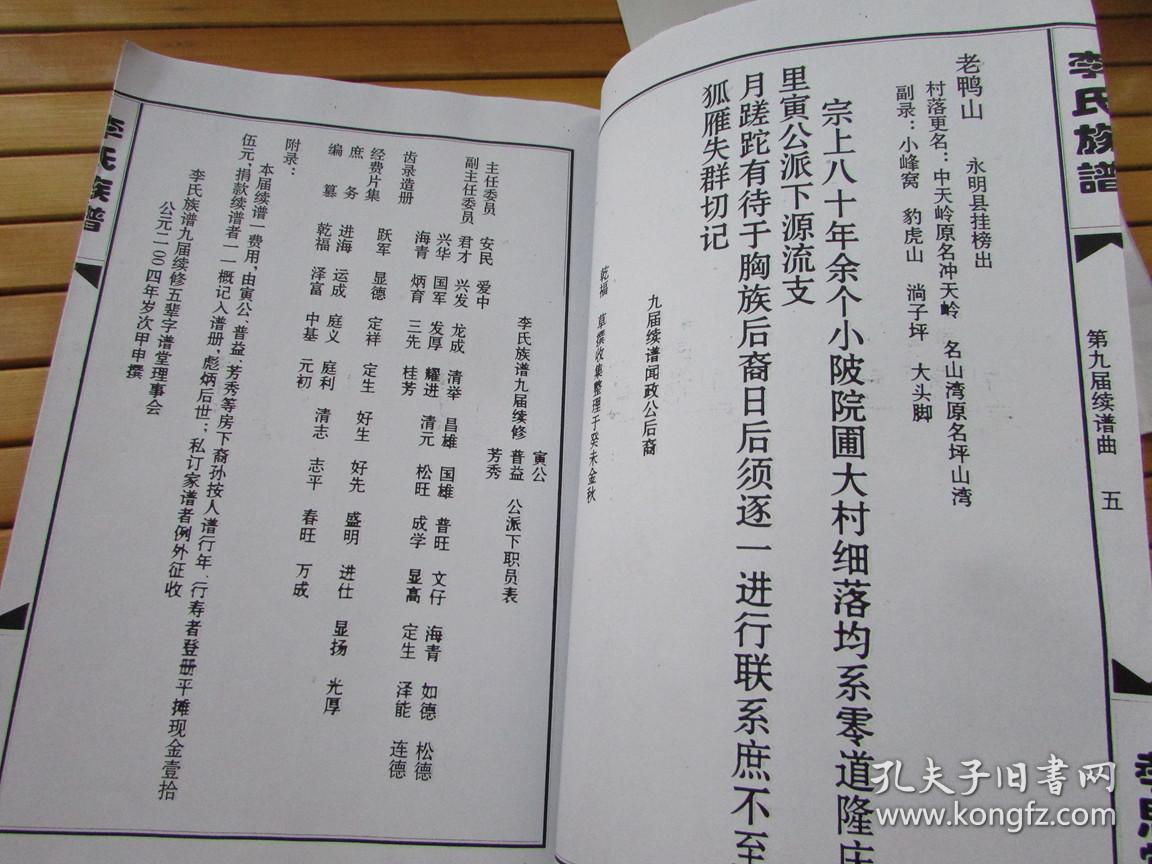 李氏族譜
第九届续谱曲 五
老鸭山 永明县挂榜出
村落更名：中天岭原名冲天岭 名山湾原名坪山湾
副录：小峰窝 豹虎山 淌子坪 大头脚
宗上八十年余个小陂院圃大村细落均系零道隆庄
里寅公派下源流支
月蹉跎有待于胸族后裔日后须逐一进行联系庶不至
狐雁失群切记
九届续谱闻政公后裔
乾福 草撰收集整理于癸未金秋
李氏族谱
李氏族谱九届续修 寅公 普益 芳秀 公派下职员表
主任委员 安民 爱中
副主任委员 君才 兴发 龙成 清举 昌雄 国雄 普旺 文仔 海青 如德 松德
齿录造册 兴华 国军 发厚 耀进 清元 松旺 成学 显高 定生 泽能 连德
海青 炳育 三先 桂芳
经费片集 跃军 显德 定祥 定生 好生 好先 盛明 进仕 显扬 光厚
庶务 进海 运成 庭义 庭利 清志 志平 春旺 万成
编篡 乾福 泽富 中基 元初
附录：
本届续谱一费用，由寅公、普益、芳秀等房下裔孙按人谱行年、行寿者登册平摊现金壹拾
伍元，捐款续谱者一一概记入谱册，彪炳后世；私订家谱者例外征收
李氏族谱九届续修五辈字谱堂理事会
公元二00四年岁次甲申撰
孔夫子旧书网
www.kongfz.com